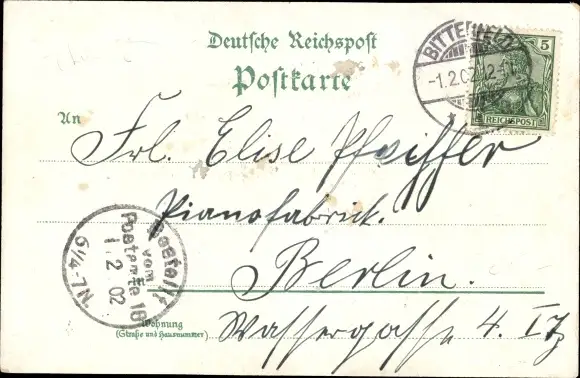 Deutsche Reichspost
Postkarte
BITTERFELD
-1.2.02.12-
5
REICHSPOST
An
Frl. Elise Pfeiffer
Pianofabrick.
Berlin.
Bestellt
vom
Postamte 16
1. 2 02
6¼-7N.
Wohnung
(Straße und Hausnummer)
Wassergasse 4.